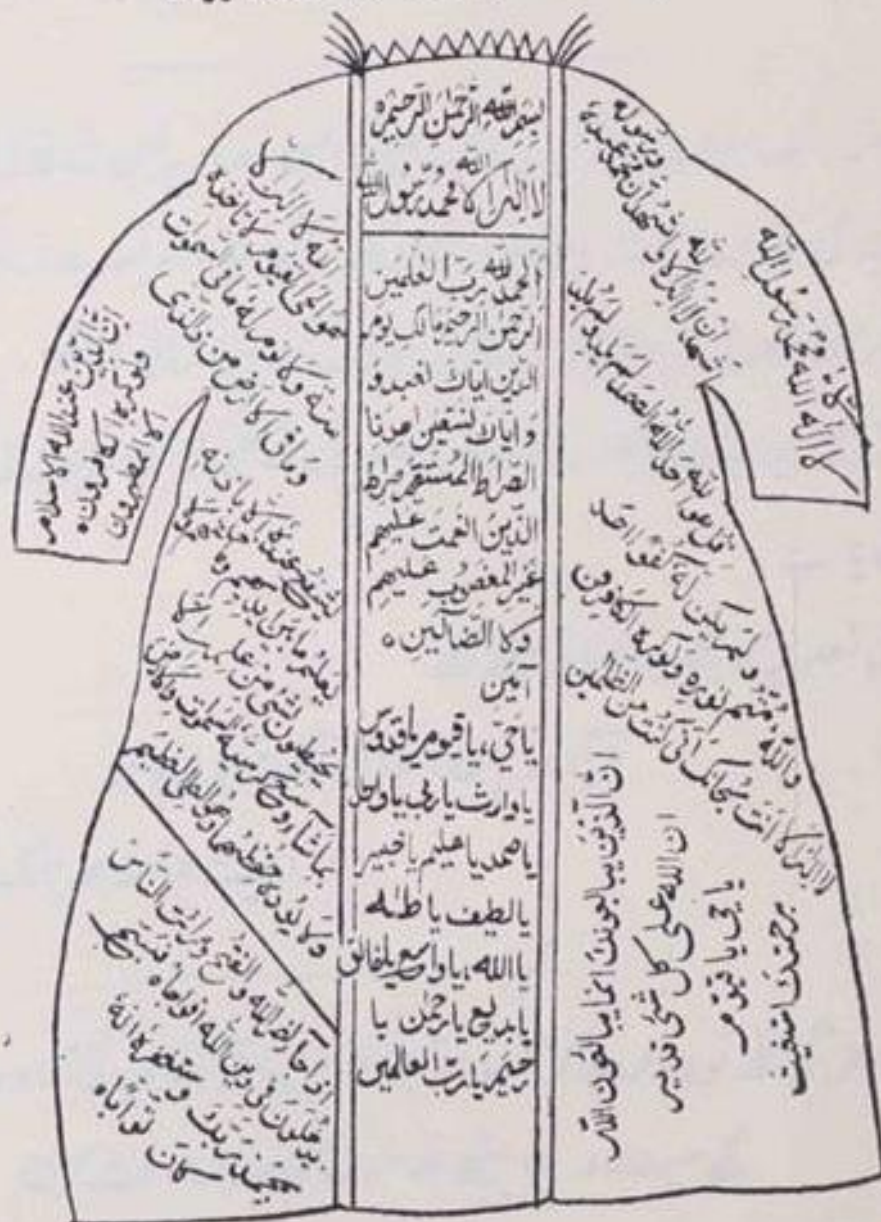 بسم الله الرحمن الرحيم
لا اله الا الله محمد رسول الله
الحمد لله رب العلمين
الرحمن الرحيم مالك يوم
الدين اياك نعبد و
واياك نستعين اهدنا
الصراط المستقيم صراط
الذين انعمت عليهم
غير المغضوب عليهم
ولا الضالين ه
آمين
يا حي، يا قيوم يا قدوس
يا وارث يا ربي يا واحد
يا صمد يا عليم يا خبير
يا لطيف يا طٰهٰ
يا الله، يا واسع يا خالق
يا بديع يا رحمٰن يا
رحيم يا رب العالمين
لا اله الا الله محمد رسول الله
اشهد ان لا اله الا الله واشهد ان محمد عبده ورسوله
قل هو الله احد الله الصمد لم يلد ولم يولد
ولم يكن له كفوا احد
والله متم نوره ولو كره الكافرون
لا اله الا انت سبحانك انى كنت من الظالمين
ان الذين يبايعونك انما يبايعون الله
ان الله على كل شئ قدير
يا حي يا قيوم
برحمتك استغيث
الله لا اله الا
هو الحي القيوم لا تاخذه
سنة ولا نوم له ما فى السموت
وما فى الارض من ذالذى
يشفع عنده الا باذنه
يعلم ما بين ايديهم وما خلفهم ولا
يحيطون بشئ من علمه الا
بما شآء وسع كرسيه السموت والارض
ولا يؤده حفظهما وهو العلى العظيم
ان الدين عند الله الاسلام
ولو كره الكافرون ه
الا المطهرون
اذا جآء نصر الله والفتح ورايت الناس
يدخلون فى دين الله افواجا ه فسبح
بحمد ربك واستغفره انه
كان توابا ه